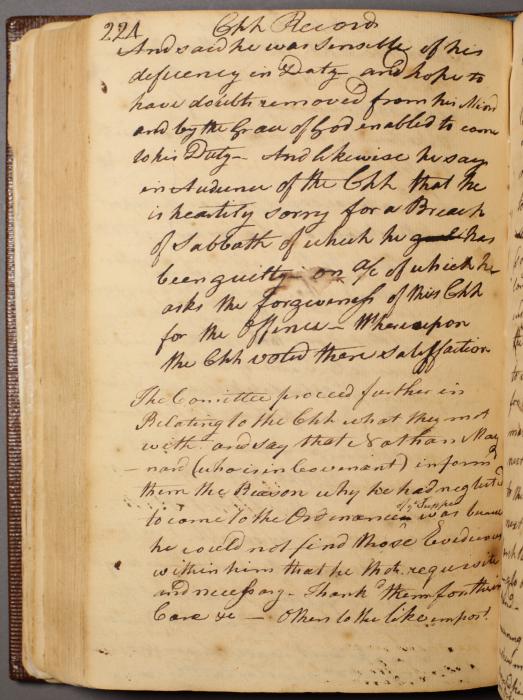 224 Chh Records
And said he was sensible of his
defisiency in Duty - and hope to
have doubts removed from his Mind
and by the Grace of God enabled to come
to his Duty - And likewise he says
in Audience of the Chh that he
is heartily sorry for a Breach
of Sabbath of which he has
been guilty on a/c of which he
asks the forgiveness of this Chh
for the Offence - Whereupon
the Chh voted there satisffaction
The Comittee proceed further in
Relating to the Chh what they met
with - and say that Nathan May
-nard (who is in Covenant) inform'd
them the Reason why he had neglect'd
to come to the Ordinance of ye Supper was because
he could not find those Evidences
within him that he tho't requisite
and necessary - Thank'd them for their
Care &c - Others to the like import.